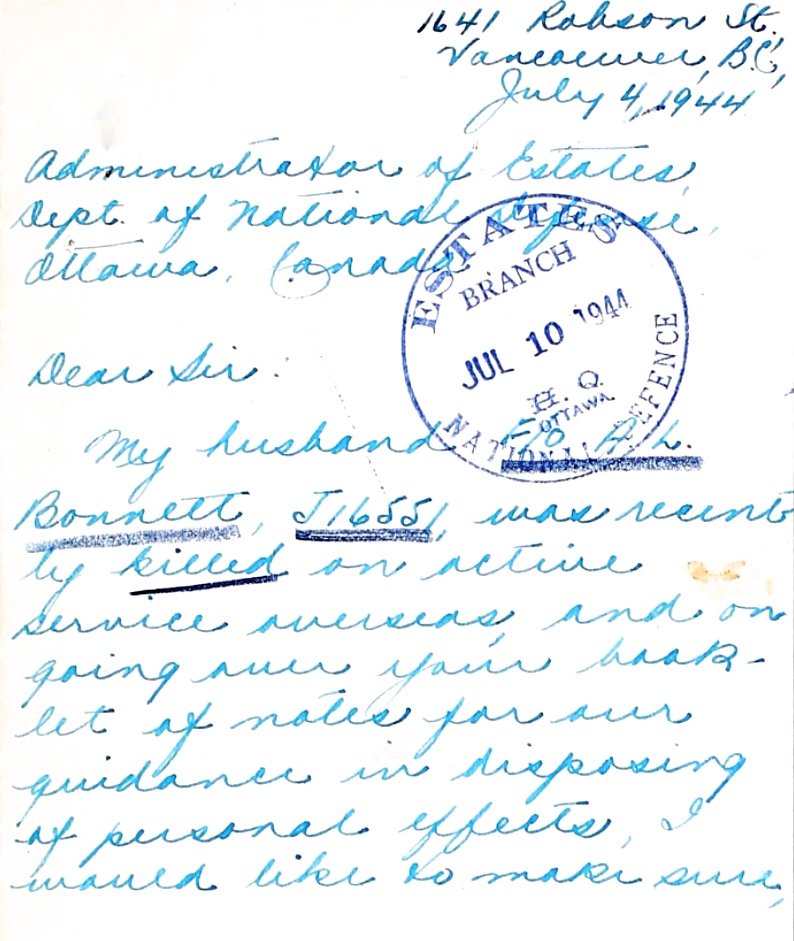 1641 Robson St.,
Vancouver, B.C.,
July 4, 1944
Administrator of Estates,
Dept. of National Defense,
Ottawa, Canada.
ESTATES
BRANCH
JUL 10 1944
H. Q.
OTTAWA.
NATIONAL DEFENCE
Dear Sir:
My husband F/O A. L.
Bonnett, J16551, was recent
ly killed on active
service overseas, and on
going over your book-
let of notes for our
guidance in disposing
of personal effects, I
would like to make sure,